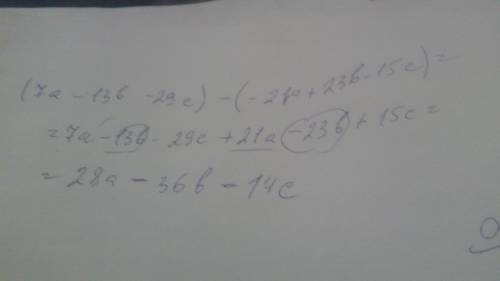 (7a - 13b - 29c) - (-21a + 23b - 15c) =
= 7a - 13b - 29c + 21a - 23b + 15c =
= 28a - 36b - 14c